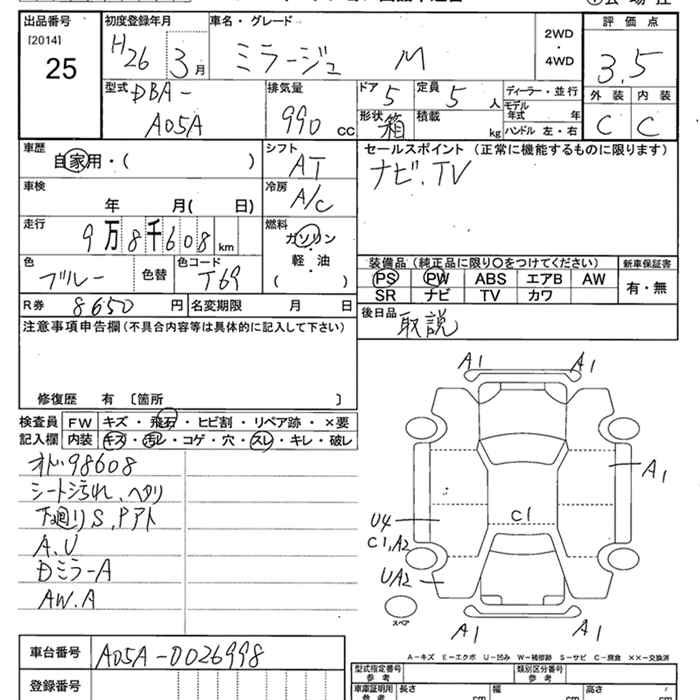 出品番号 初度登録年月 車名・グレード 評価点
[2014] 25
H26 3月 ミラージュ M 2WD・4WD 3.5
型式 DBA-A05A
排気量 990 cc
ドア 5 定員 5 人
形状 箱 積載 kg
ディーラー・並行
モデル年式 年式
ハンドル 左・右
外装 内装
C C
車歴 自家用・( )
シフト AT
セールスポイント (正常に機能するものに限ります)
ナビ、TV
車検 年 月( 日)
冷房 A/C
走行 9万8千608km
燃料 ガソリン・軽・油 ( )
色 ブルー 色替 色コード T69
装備品 (純正品に限り○をつけてください) 新車保証書
PS PW ABS エアB AW 有・無
SR ナビ TV カワ
R券 8650円 名変期限 月 日
後日品 取説
注意事項申告欄(不具合内容等は具体的に記入して下さい)
修復歴 有 〔箇所 〕
検査員記入欄
FW キズ・飛石・ヒビ割・リペア跡・×要
内装 キズ・汚レ・コゲ・穴・スレ・キレ・破レ
オド98608
シートシミ汚れ、ヘタリ
下廻りS、Pアト
A、U
DミラーA
AW.A
A1 A1
A1
C1
U4
C1,A2
UA2
A1 A1
スペア
A-キズ E-エクボ U-凹み W-補修跡 S-サビ C-腐食 ××-交換済
車台番号 A05A-0026998
登録番号
型式指定番号 参考
類別区分番号 参考
車庫証明用 参考 長さ cm 幅 cm 高さ cm